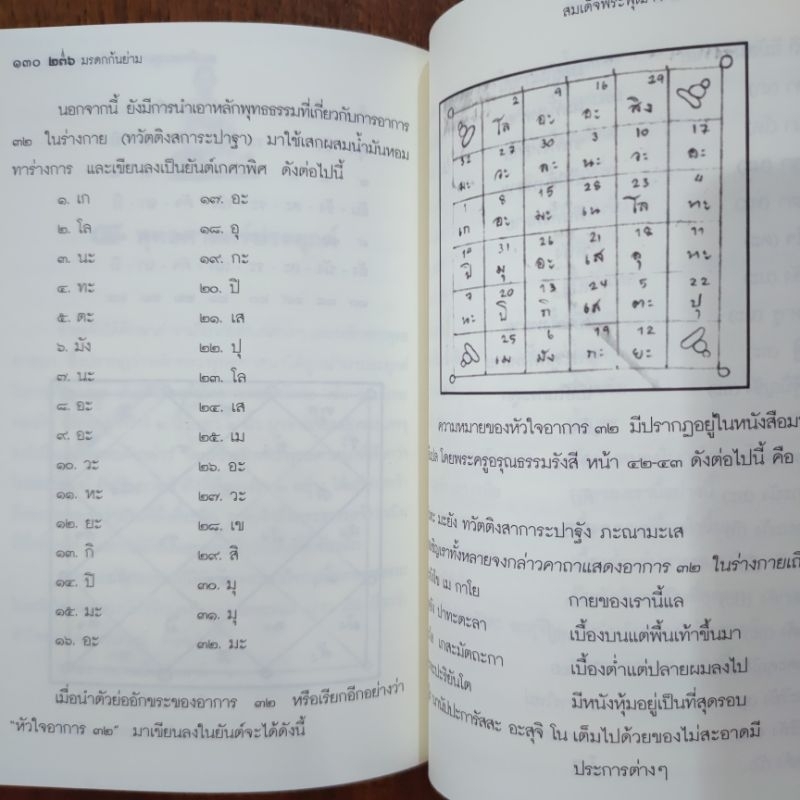 ๑๓๐ ๒๓๖ มรดกก้นย่าม
นอกจากนี้ ยังมีการนำเอาหลักพุทธธรรมที่เกี่ยวกับการอาการ
๓๒ ในร่างกาย (ทวัตติงสการะปาฐา) มาใช้เสกผสมน้ำมันหอม
ทาร่างการ และเขียนลงเป็นยันต์เกศาพิศ ดังต่อไปนี้
๑. เก
๒. โล
๓. นะ
๔. ทะ
๕. ตะ
๖. มัง
๗. นะ
๘. อะ
๙. อะ
๑๐. วะ
๑๑. หะ
๑๒. ยะ
๑๓. กิ
๑๔. ปิ
๑๕. มะ
๑๖. อะ
๑๗. อะ
๑๘. อุ
๑๙. กะ
๒๐. ปิ
๒๑. เส
๒๒. ปุ
๒๓. โล
๒๔. เส
๒๕. เม
๒๖. อะ
๒๗. วะ
๒๘. เข
๒๙. สิ
๓๐. มุ
๓๑. มุ
๓๒. มะ
เมื่อนำตัวย่ออักขระของอาการ ๓๒ หรือเรียกอีกอย่างว่า
"หัวใจอาการ ๓๒" มาเขียนลงในยันต์จะได้ดังนี้
สมเด็จพระพุฒา
2 9 16 29
โล อะ อะ สิง
32 27 30 3 10 17
มะ วะ นะ วะ
1 8 15 28 23 4
เก อะ มะ เน โล ทะ
31 26 21 18 11
ปิ มุ อะ เส อุ หะ
7 20 13 24 5 22
นะ ปิ กิ เส ตะ ปุ
25 6 19 12
เม มัง กะ ยะ
ความหมายของหัวใจอาการ ๓๒ มีปรากฏอยู่ในหนังสือม
โดยพระครูอรุณธรรมรังสี หน้า ๔๒-๔๓ ดังต่อไปนี้ คือ
มะยัง ทวัตติงสาการะปาฐัง ภะณามะเส
เราทั้งหลายจงกล่าวคาถาแสดงอาการ ๓๒ ในร่างกายเถิ
เม กาโย กายของเรานี้แล
ปาทะตะลา เบื้องบนแต่พื้นเท้าขึ้นมา
เกสะมัตถะกา เบื้องต่ำแต่ปลายผมลงไป
ปะริยันโต มีหนังหุ้มอยู่เป็นที่สุดรอบ
นานัปปะการัสสะ อะสุจิ โน เต็มไปด้วยของไม่สะอาดมี
ประการต่างๆ